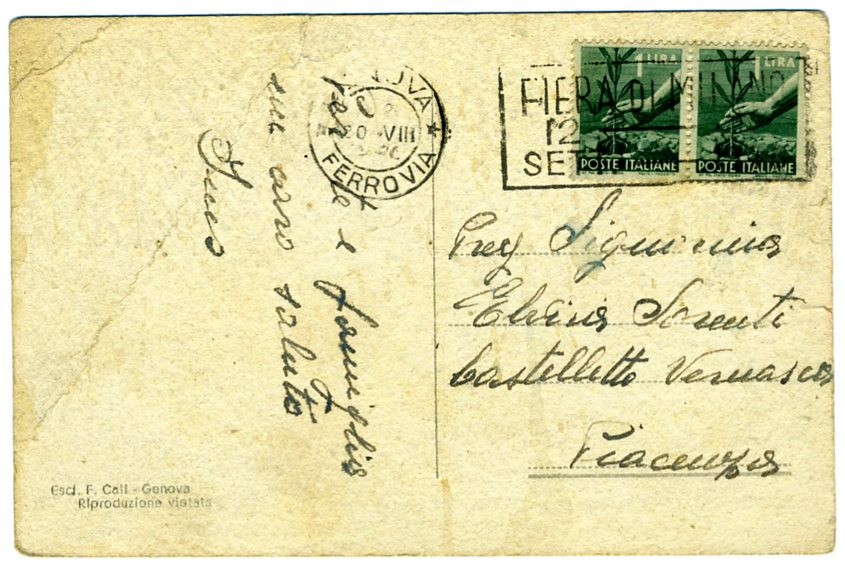 1 LIRA
POSTE ITALIANE
1 LIRA
POSTE ITALIANE
FIERA DI MILANO
12
SETT
NOVA
20 VIII
FERROVIA
per te e famiglia
un caro saluto
Ines
Preg Signorina
Elvira
Castelletto Vernasca
Piacenza
Escl. F. Cali - Genova
Riproduzione vietata